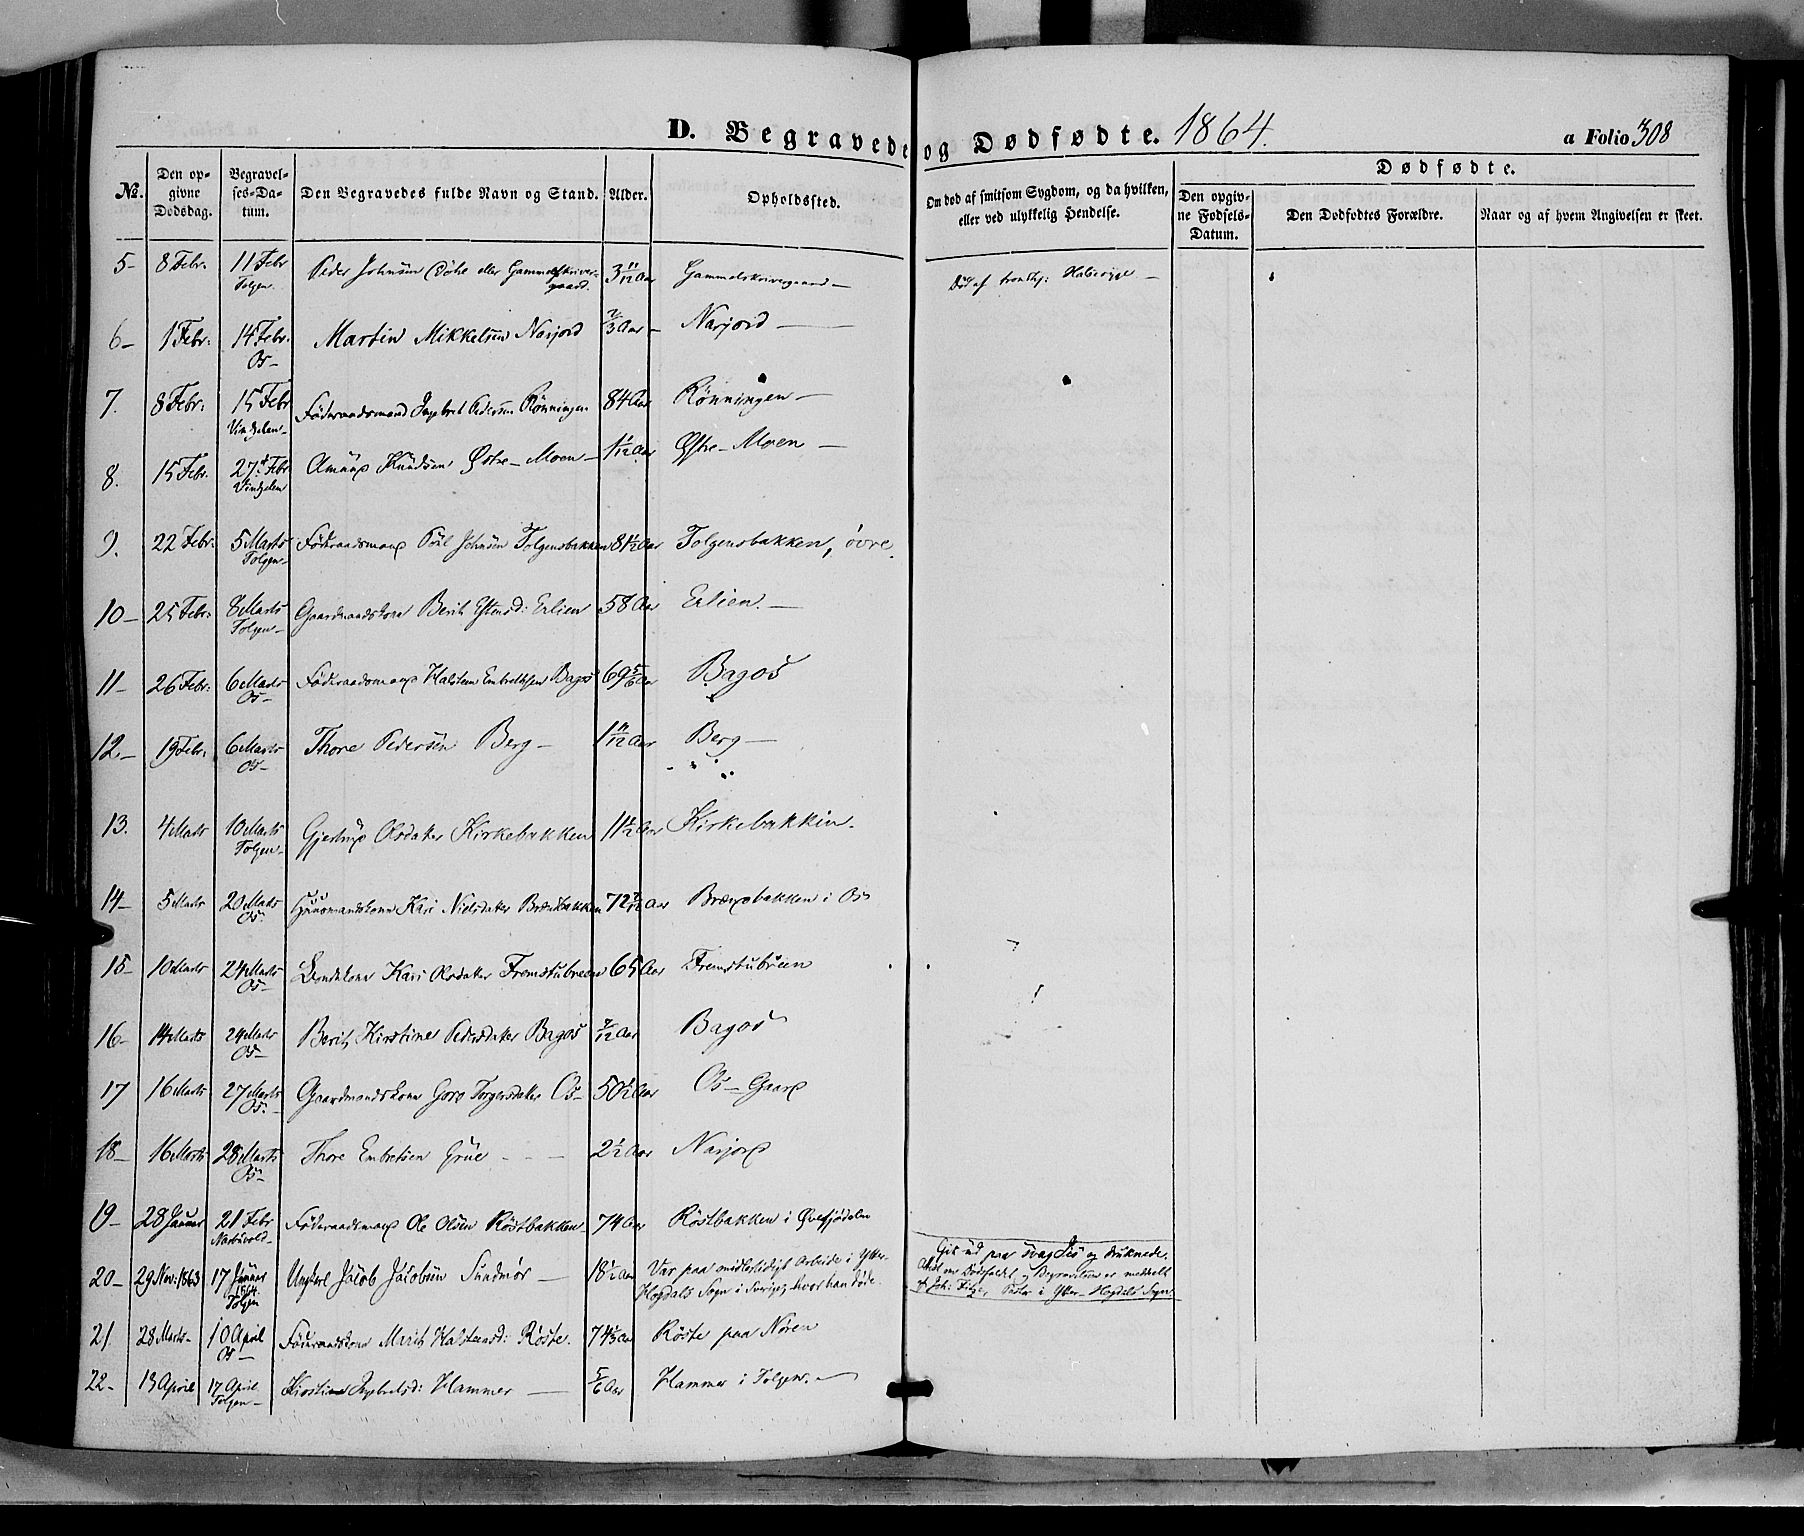 D. Begravede og Dødfødte. 1864. a Folio 308
No. Den opgivne Dødsdag. Begravelses-Datum. Den Begravedes fulde Navn og Stand. Alder. Opholdssted. Om død af smitsom Sygdom, og da hvilken, eller ved ulykkelig Hendelse. Dødfødte.
Den opgivne Fødsels-Datum. Den Dødfødtes Forældre. Naar og af hvem Angivelsen er skeet.
5- 8 Febr. 11 Febr Tolgen. Peder Johnsen eller Gammelskrivergaard. 3 11/12 Aar Gammelskrivergaard - Død af
6- 1 Febr: 14 Febr. Os- Martin Mikkelsen Narjord 2/3 Aar - Narjord -
7. 8 Febr: 15 Febr Vingelen- Føderaadsmand Ingebret Pedersen Rønningen 84 Aar Rønningen -
8. 15 Febr. 27 Febr Vingelen Knudsen Østre-Moen - 1 1/12 Aar Østre-Moen -
9. 22 Febr. 5 Marts Tolgen- Føderaadsmand Paal Johnsen Tolgensbakken 81 1/2 Aar Tolgensbakken, øvre.
10- 25 Febr: 8 Marts Tolgen- Gaardmandskone Berit Estensd: Erlien 58 Aar Erlien. -
11- 26 Febr: 6 Marts Os- Føderaadsmand Halsten Embretsen Bagos 69 5/6 Aar Bagos
12- 19 Febr. 6 Marts Os- Thore Pedersen Berg - 1 11/12 Aar Berg -
13. 4 Marts 10 Marts Tolgen- Gjertrud Olsdater Kirkebakken 11 1/2 Aar Kirkebakken.
14- 5 Marts 20 Marts Os. Huusmandskone Kari Nielsdater Brændbakken 72 Aar Brændbakken i Os
15- 10 Marts 24 Marts Os- Kari Olsdater Fremstubrien 65 Aar Fremstubrien
16- 14 Marts 24 Marts Os- Berit Kirstine Pedersdater Bagos Aar Bagos
17 16 Marts 27 Marts Os- Gaardmandskone Goro Torgersdater Os- 50 1/2 Aar Os-Gaard
18- 16 Marts 28 Marts Os- Thore Embretsen Grue - - - 2 1/2 Aar Narjord
19- 28 Januar 21 Febr Narbuvold- Føderaadsmand Ole Olsen Røstbakken 74 Aar Røstbakken i Øversjødalen
20- 29 Nov: 1863 17 Januar 1864. Tolgen Ungkarl Jacob Jacobsen Sundmør - 18 1/2 Aar Var paa midlertidigt Arbeide i Ytter-Hogdals Sogn i Sverige, hvor han døde. Gik ud paa svag Iis og druknede. Attest om Dødsfaldet og Begravelsen er meddelt af Pastor i Ytter-Hogdals Sogn
21. 28 Marts- 10 April Os- Føderaadskone Marit Halstensd: Røste. 74 Aar Røste paa Nøren
22- 13 April 17 April Tolgen- Kirstine Ingebretsd: Hammer - 5/6 Aar Hammer i Tolgen. -